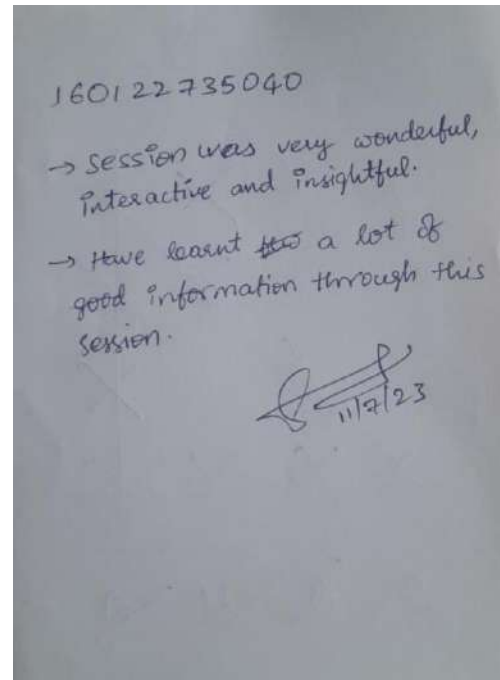 160122735040
→ Session was very wonderful,
interactive and insightful.
→ Have learnt a lot of
good information through this
session.
11/7/23